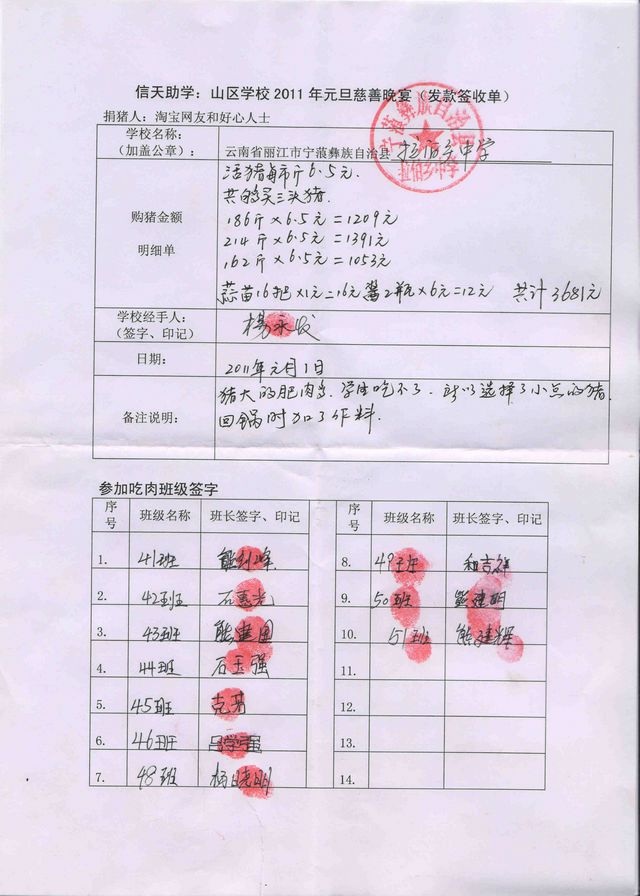 信天助学：山区学校2011年元旦慈善晚宴（发款签收单）
捐猪人：淘宝网友和好心人士
学校名称：
（加盖公章）：
云南省丽江市宁蒗彝族自治县 中学
购猪金额
明细单
活猪每市斤6.5元.
共购买三头猪.
186斤×6.5元=1209元
214斤×6.5元=1391元
162斤×6.5元=1053元
蒜苗16把×1元=16元 酱2瓶×6元=12元 共计3681元
学校经手人：
（签字、印记）
楊永发
日期：
2011年元月1日
备注说明：
猪大的肥肉多，学生吃不了，所以选择了小点的猪.
回锅时加了作料.
参加吃肉班级签字
序号 班级名称 班长签字、印记
1. 41班
2. 42班 石惠光
3. 43班 熊建国
4. 44班 石玉强
5. 45班 克芳
6. 46班
7. 48班 杨晓明
序号 班级名称 班长签字、印记
8. 49班 和吉祥
9. 50班 熊建明
10. 51班 熊建辉
11.
12.
13.
14.